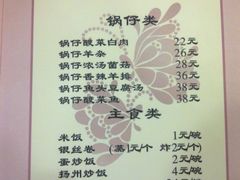 锅仔类
锅仔酸菜白肉 22元
锅仔羊杂 26元
锅仔浓汤菌菇 28元
锅仔香辣羊排 36元
锅仔鱼头豆腐汤 38元
锅仔酸菜鱼 38元
主食类
米饭 1元/碗
银丝卷 (蒸1元/个 炸2元/个)
蛋炒饭 2元/碗
扬州炒饭 4元/碗